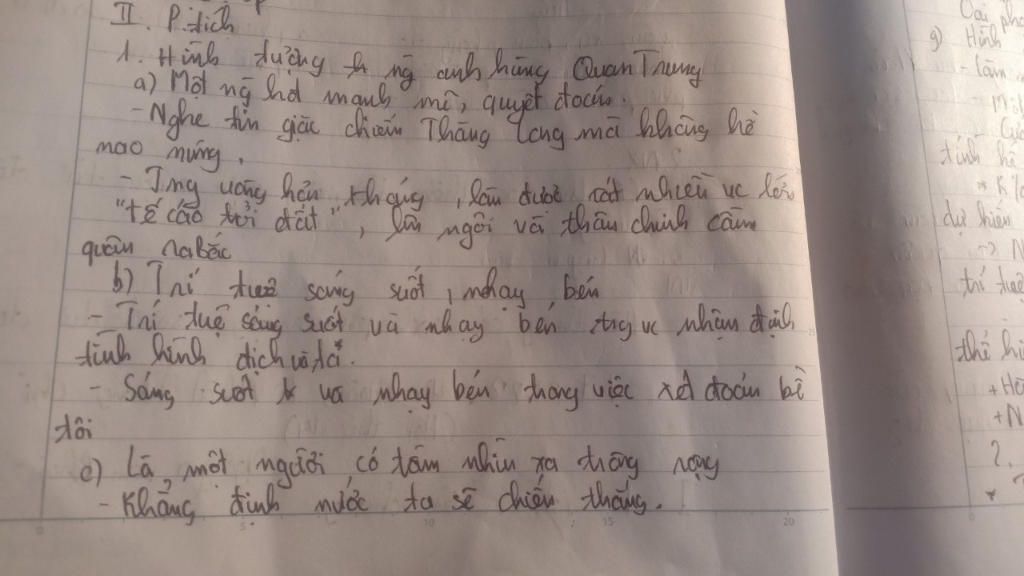 II. P.tích
1. Hình tường ng anh hùng Quan Trung
a) Một ng hđ mạnh mẽ, quyết đoán.
- Nghe tin giặc chiếm Thăng Long mà không hề
nao núng.
- Trng vòng hơn tháng, làm được rất nhiều vc lớn
"tế cáo trời đất", lên ngôi và thân chinh cầm
quân ra Bắc
b) Trí tuệ sáng suốt, nhạy bén
- Trí tuệ sáng suốt và nhạy bén trg vc nhận định
tình hình địch và ta.
- Sáng suốt và nhạy bén trong việc xét đoán bề
tôi
c) Là một người có tầm nhìn xa trông rộng
- Khẳng định nước ta sẽ chiến thắng.
g) Hình
- làm
tính
dự kiến
trí tuệ
thể hi
+ N
2.